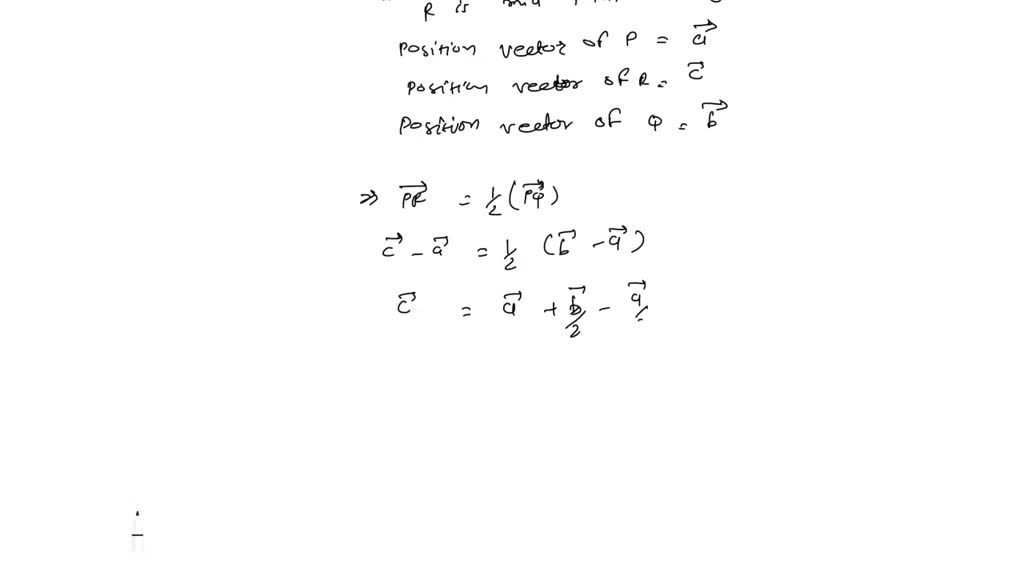 R is
Position vector of P = \vec{a}
Position vector of R = \vec{c}
Position vector of Q = \vec{b}
⇒ \vec{PR} = \frac{1}{2} (\vec{PQ})
\vec{c} - \vec{a} = \frac{1}{2} (\vec{b} - \vec{a})
\vec{c} = \vec{a} + \frac{\vec{b}}{2} - \vec{a}/